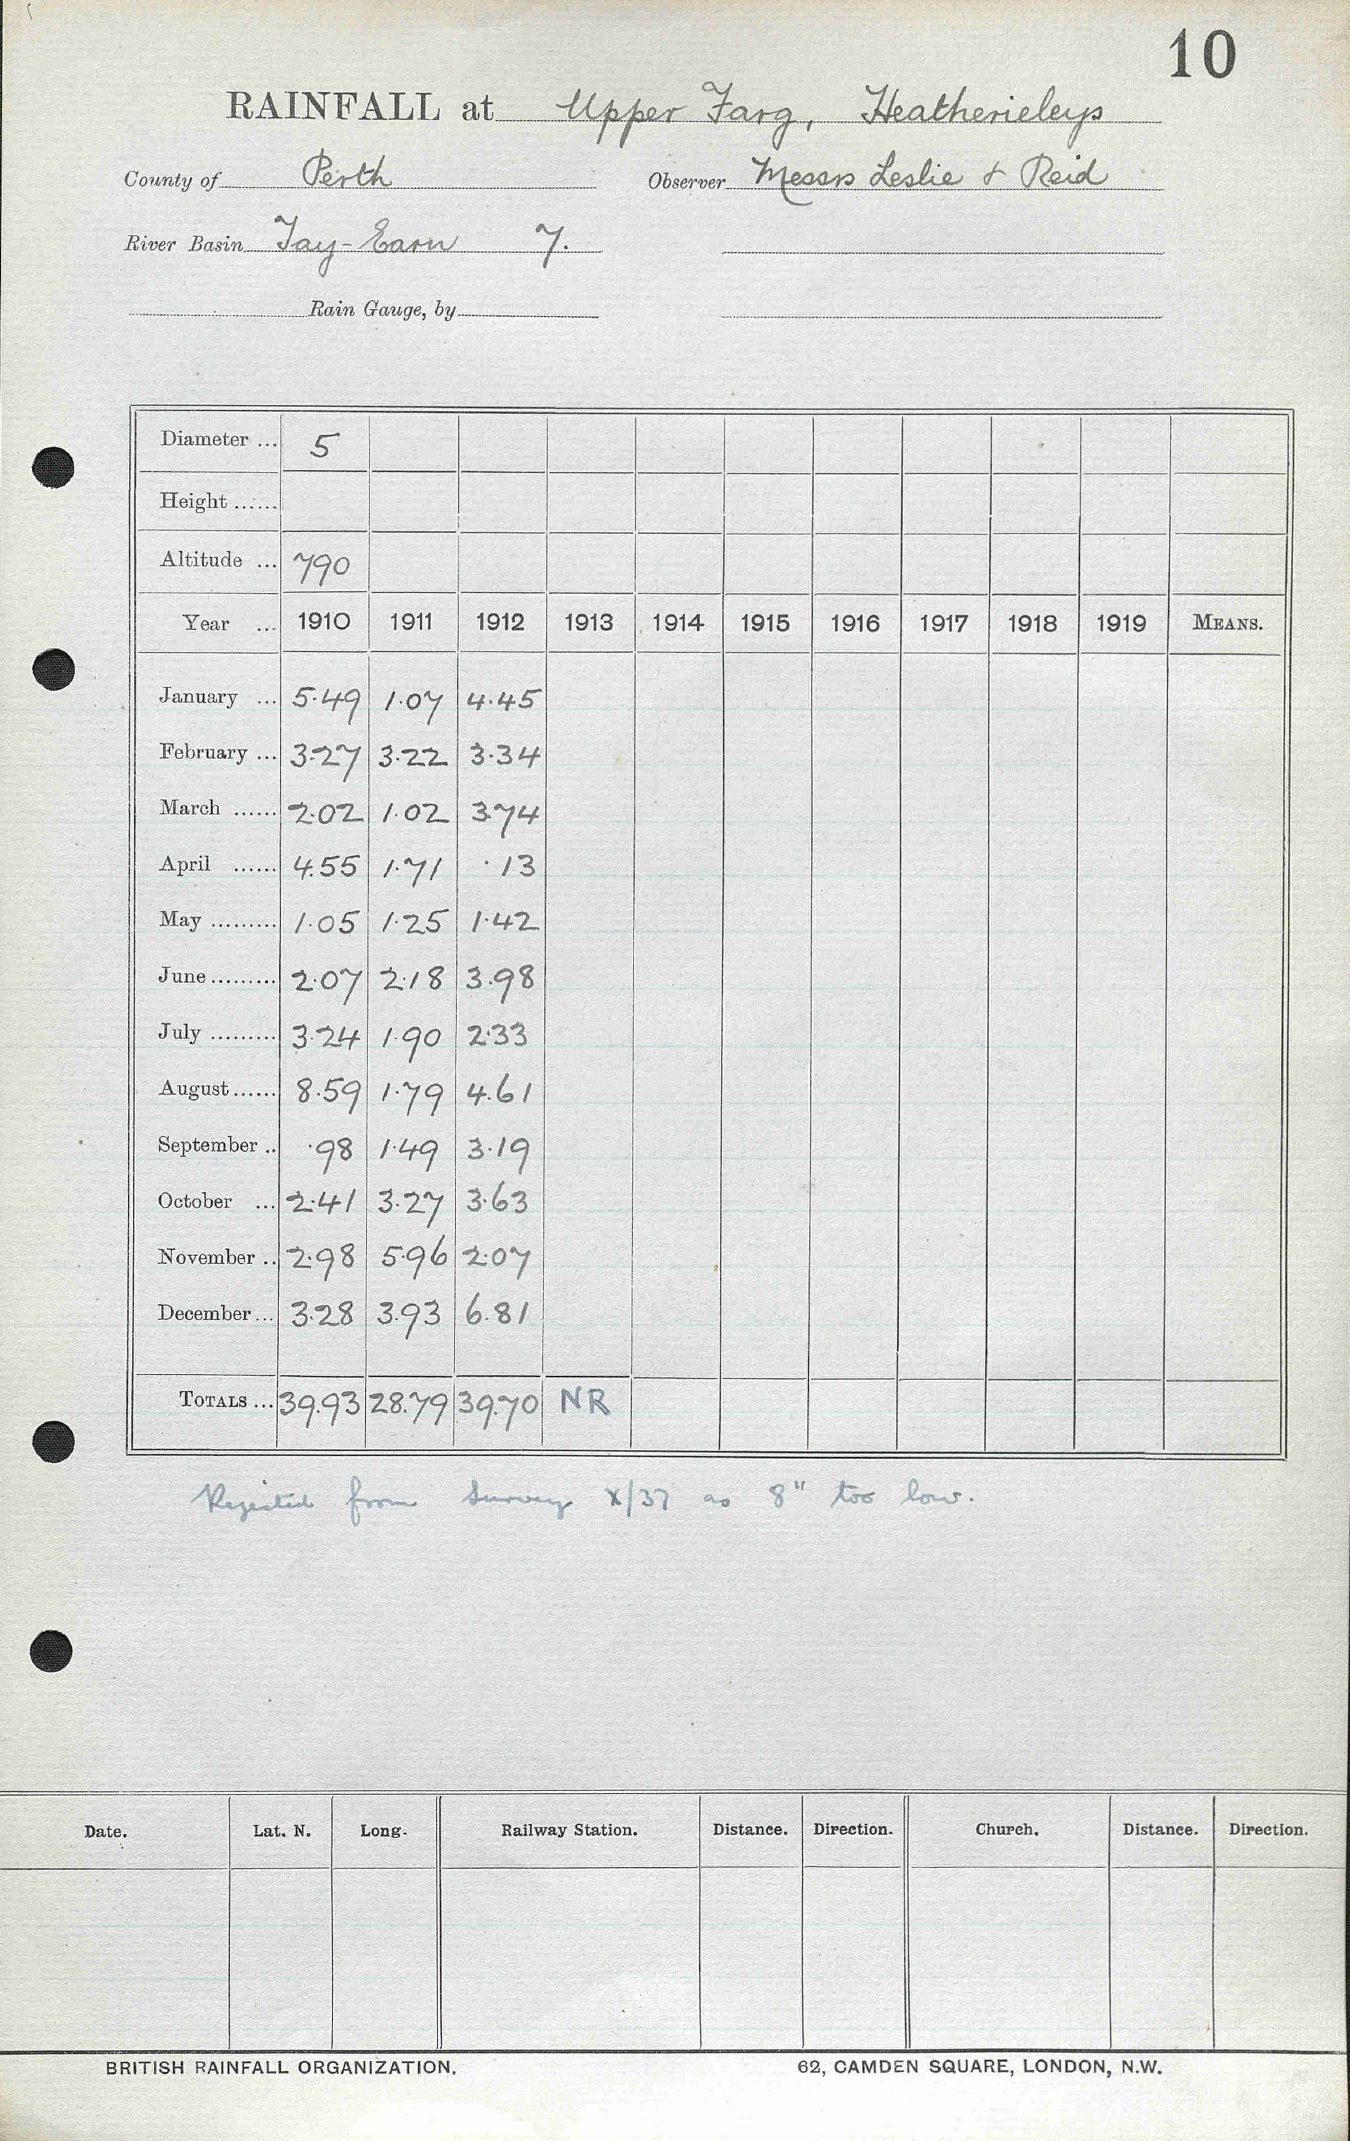 10
RAINFALL at Upper Farg, Heatherieleys
County of Perth Observer Messrs Leslie & Reid
River Basin Tay-Earn 7.
Rain Gauge, by
Diameter ... 5
Height ......
Altitude ... 790
Year ... 1910 1911 1912 1913 1914 1915 1916 1917 1918 1919 MEANS.
January ... 5.49 1.07 4.45
February ... 3.27 3.22 3.34
March ...... 2.02 1.02 3.74
April ...... 4.55 1.71 .13
May ......... 1.05 1.25 1.42
June ......... 2.07 2.18 3.98
July ......... 3.24 1.90 2.33
August ...... 8.59 1.79 4.61
September .. .98 1.49 3.19
October ... 2.41 3.27 3.63
November .. 2.98 5.96 2.07
December ... 3.28 3.93 6.81
TOTALS ... 39.93 28.79 39.70 NR
Rejected from Survey X/37 as 8" too low.
Date. Lat. N. Long. Railway Station. Distance. Direction. Church. Distance. Direction.
BRITISH RAINFALL ORGANIZATION. 62, CAMDEN SQUARE, LONDON, N.W.